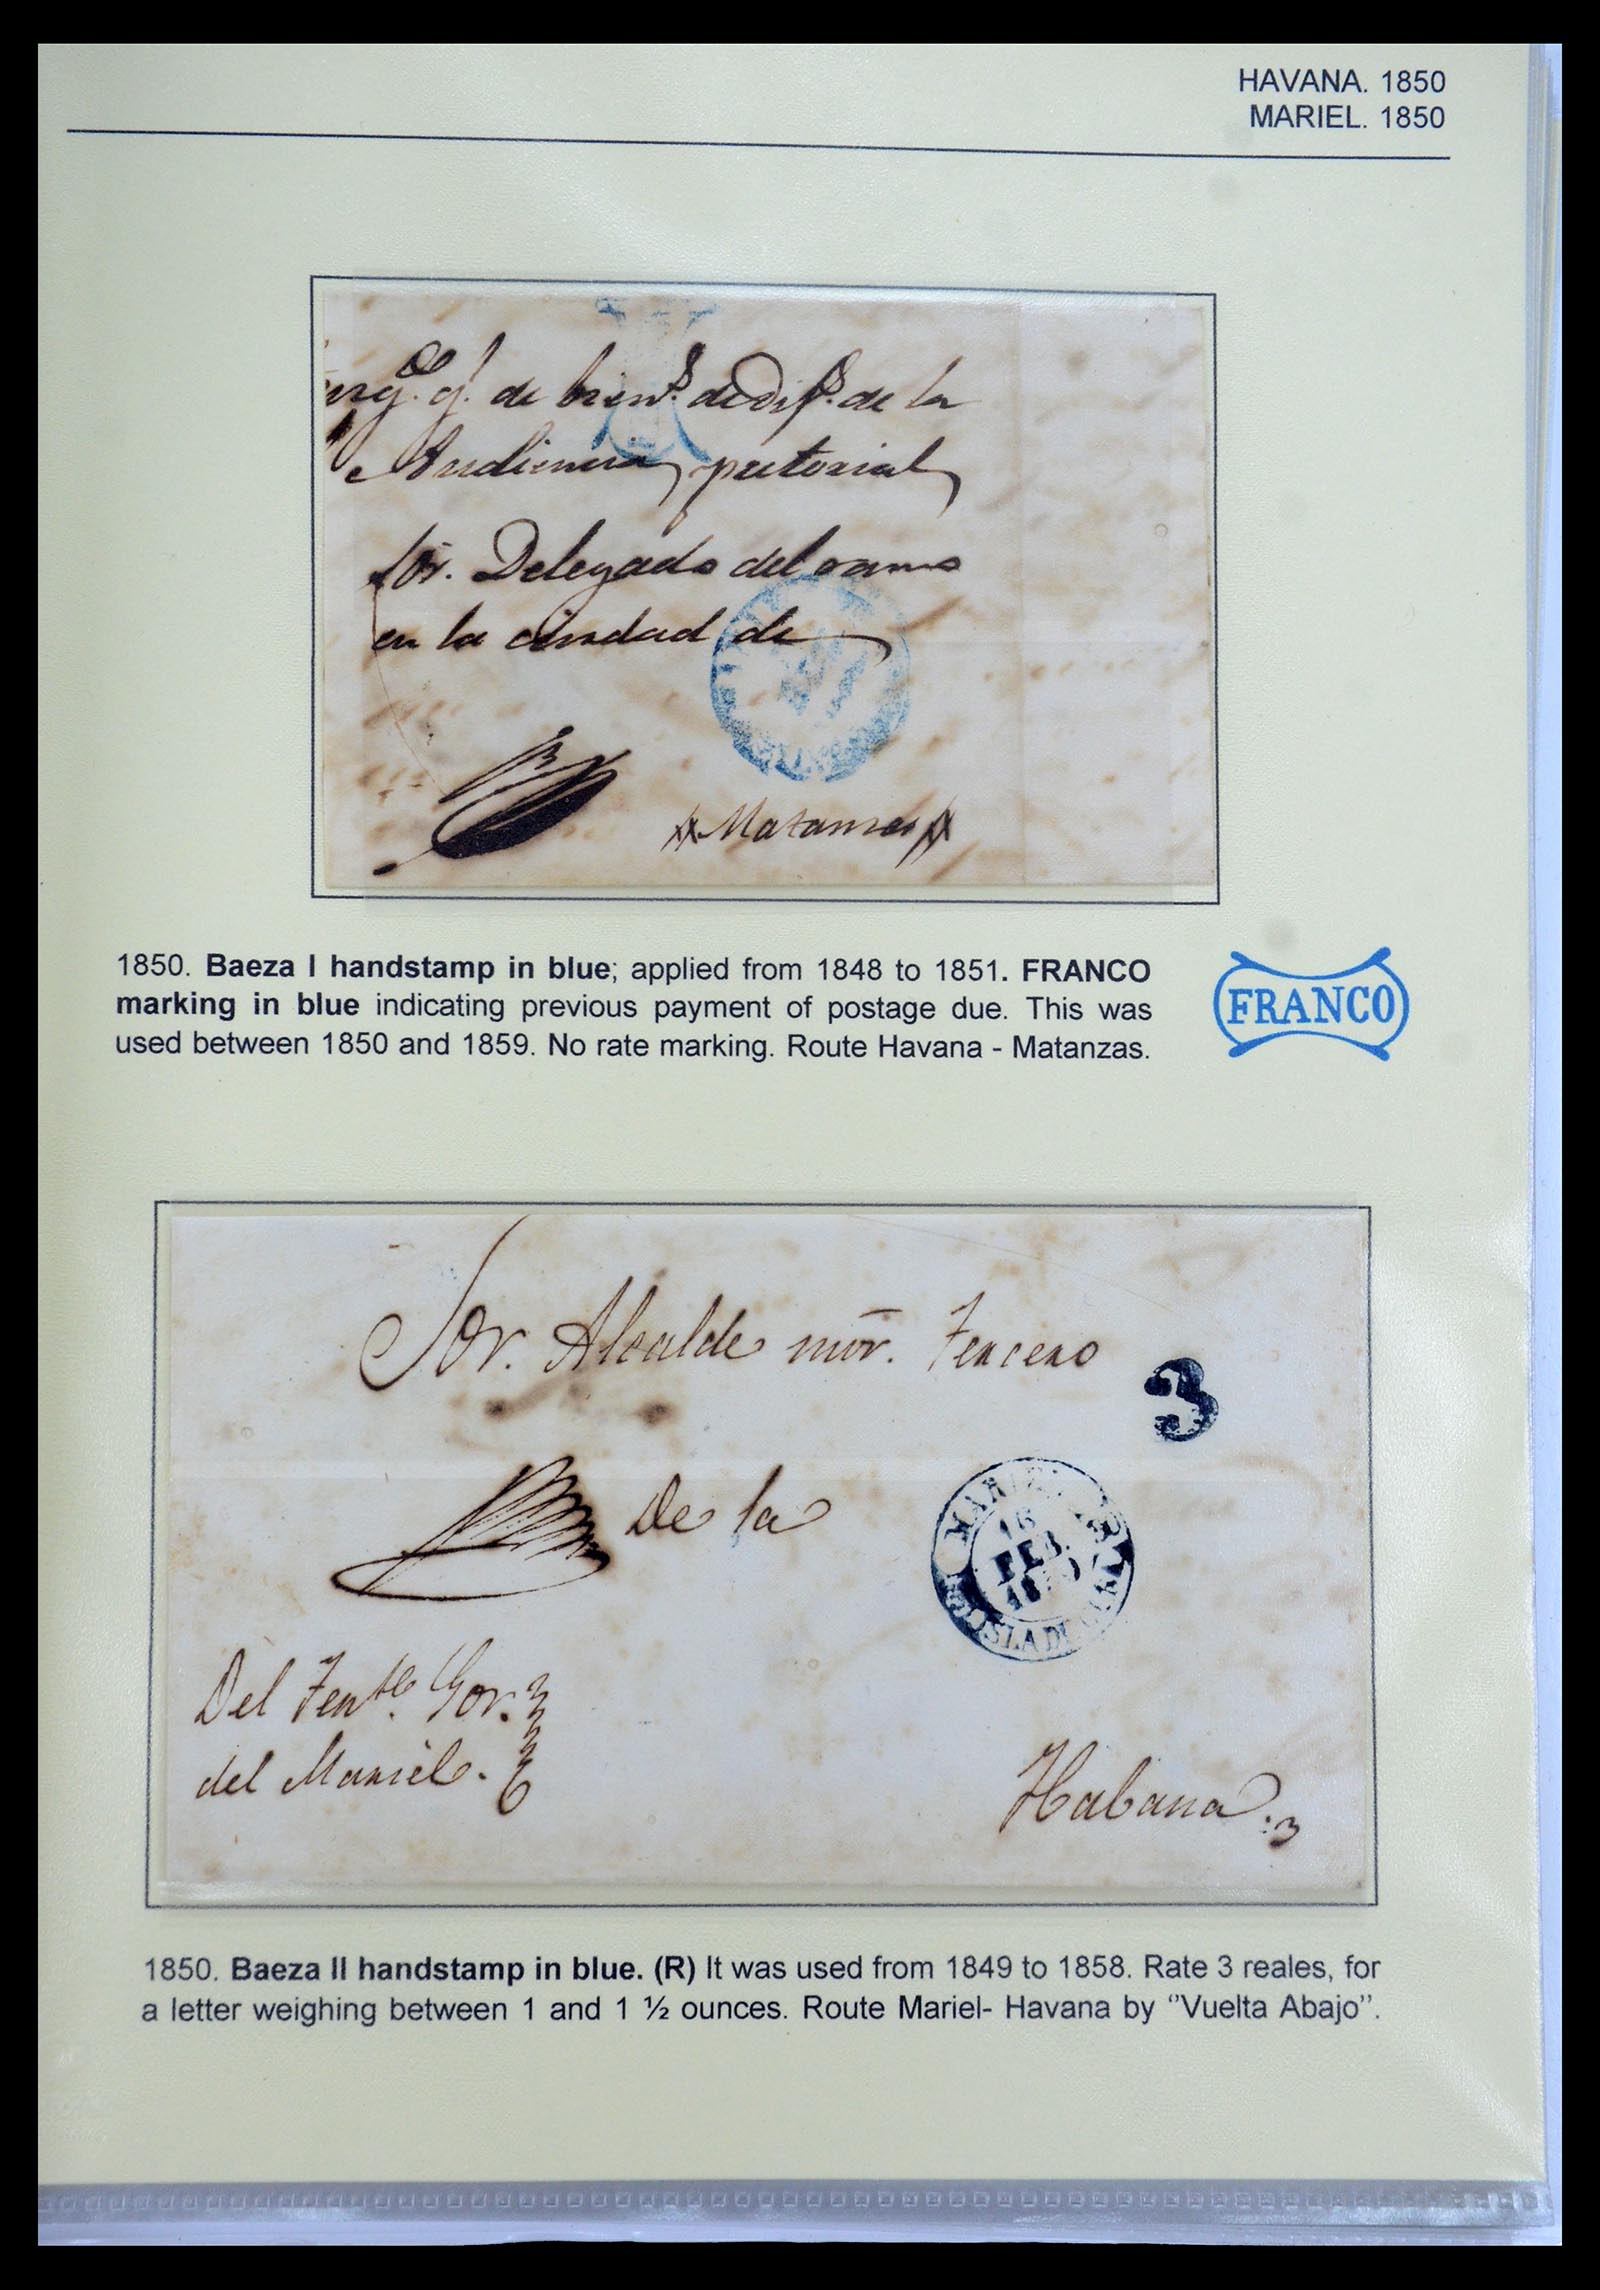 HAVANA. 1850
MARIEL. 1850
de la
Audiencia pretorial
Sor. Delegado del ramo
en la ciudad de
Matanzas
1850. Baeza I handstamp in blue; applied from 1848 to 1851. FRANCO
marking in blue indicating previous payment of postage due. This was
used between 1850 and 1859. No rate marking. Route Havana - Matanzas.
FRANCO
Sor. Alcalde mõr. Tercero
3
De la
16
FEB.
ISLA DE
Del Tente. Gor.
del Mariel.
Habana
1850. Baeza II handstamp in blue. (R) It was used from 1849 to 1858. Rate 3 reales, for
a letter weighing between 1 and 1 ½ ounces. Route Mariel- Havana by ‘’Vuelta Abajo’’.